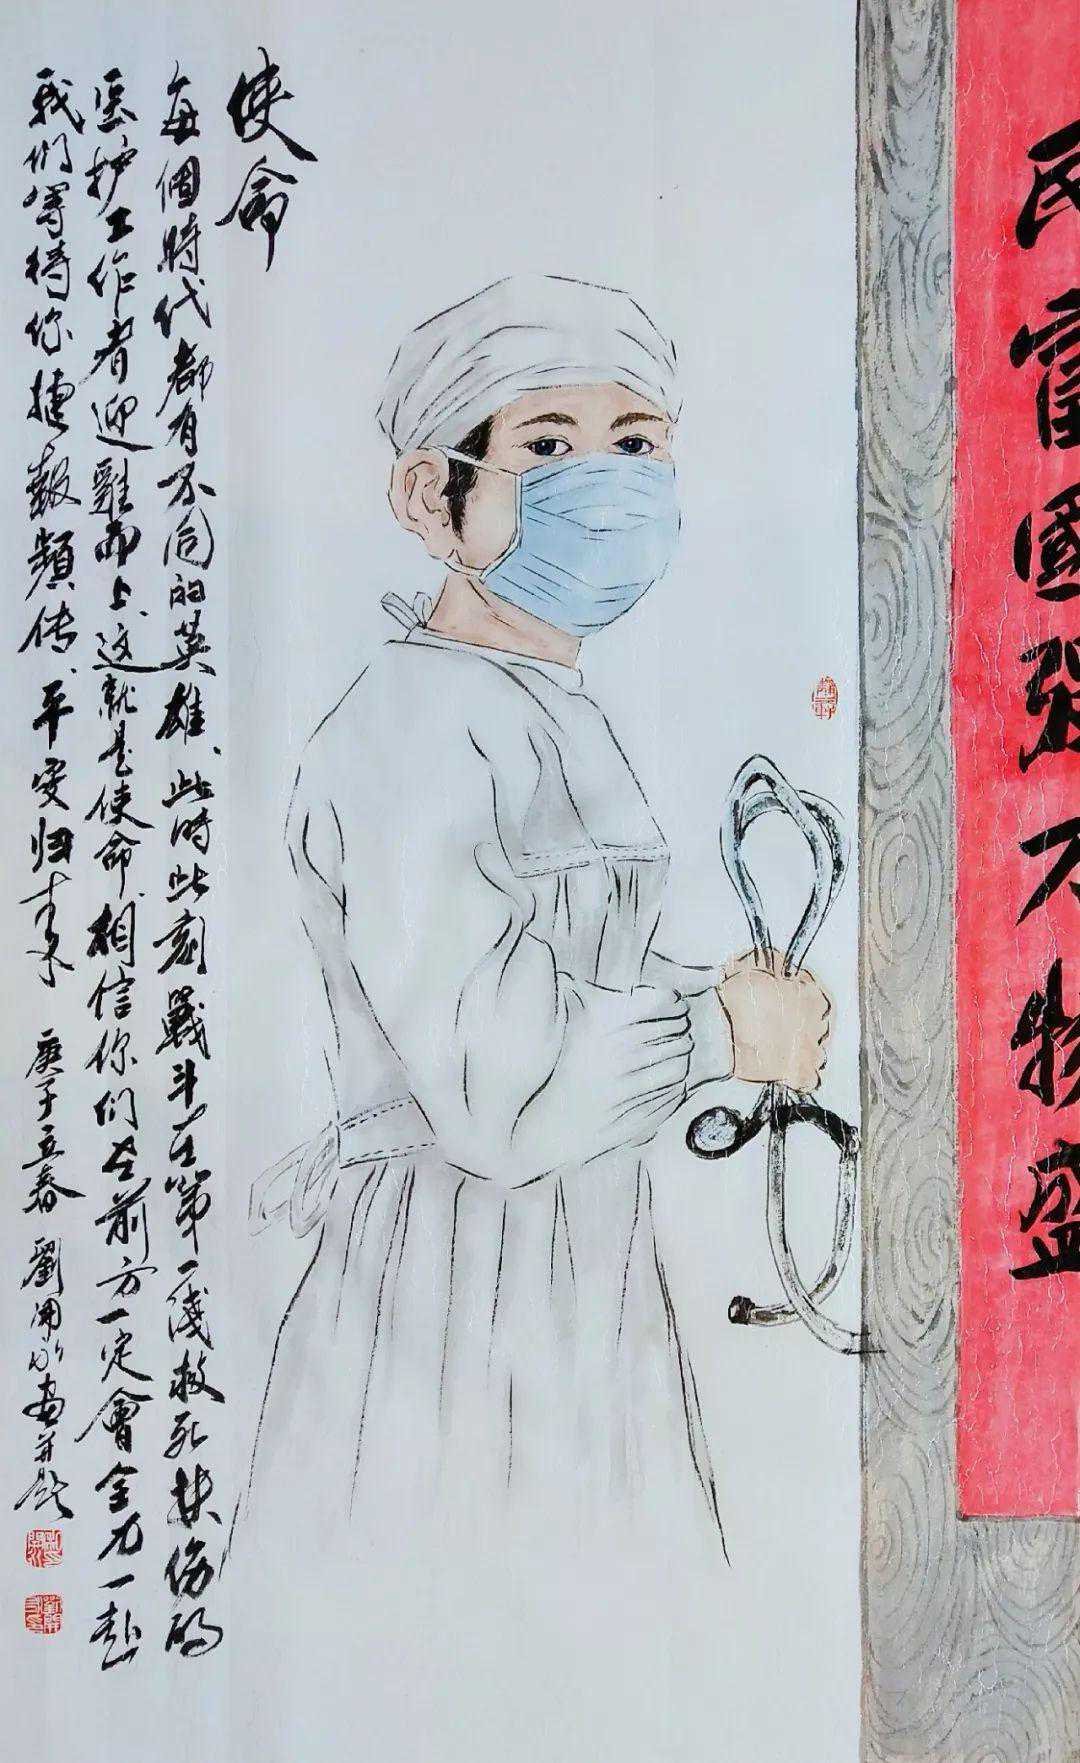 民富國强万物盛
使命
每個時代都有不同的英雄、此时此刻戰斗在第一綫救死扶伤的
医护工作者迎難而上、这就是使命、相信你们在前方一定會全力一赴
我们等待你捷報頻传、平安归来 庚子立春 劉開画并题